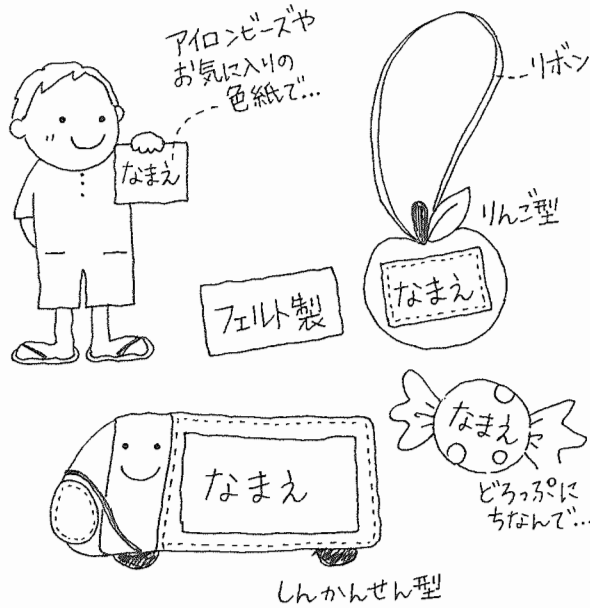 アイロンビーズや
お気に入りの
色紙で…
なまえ
リボン
りんご型
なまえ
フェルト製
なまえ
どろっぷに
ちなんで…
なまえ
しんかんせん型